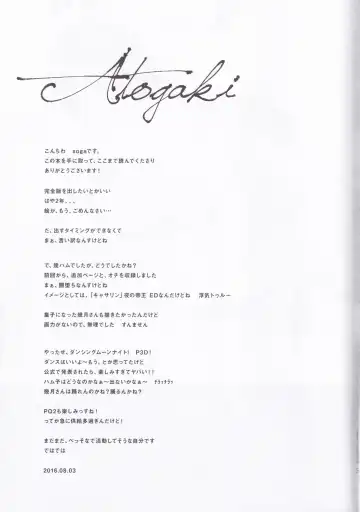 Atogaki
こんちわ sogaです。
この本を手に取って、ここまで読んでくださり
ありがとうございます!
完全版を出したいとかいい
はや2年、、、
絵が、もう、ごめんなさい…
だ、出すタイミングができなくて
まぁ、言い訳なんすけどね
で、
ハムでしたが、どうでしたかね?
前回から、追加ページと、オチを収録しました
まぁ、闇堕ちなんすけどね
イメージとしては、「キャサリン」夜の帝王 EDなんだけどね 浮気トゥルー
養子になった幾月さんも描きたかったんだけど
画力がないので、無理でした すんません
やったぜ、ダンシングムーンナイト! P3D!
ダンスはいいよ~もう、とか思ってたけど
公式で発表されたら、楽しみすぎてヤバい!?
ハム子はどうなのかなぁ~出ないかなぁ~ チラッチラッ
幾月さんは踊れんのかね?踊るんかね?
PQ2も楽しみっすね!
ってか急に供給多過ぎんだけど!
まだまだ、ぺっそなで活動してそうな自分です
ではでは
2016.08.03